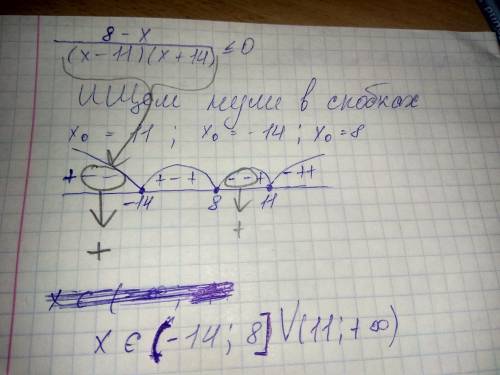 8 - x
(x-11)(x+14) ≤ 0
Ищем нули в скобках
x₀ = 11 ; x₀ = -14 ; x₀ = 8
+ - - + - + - - + - + +
-14 8 11
+ +
x ∈ (-14; 8] V (11; +∞)